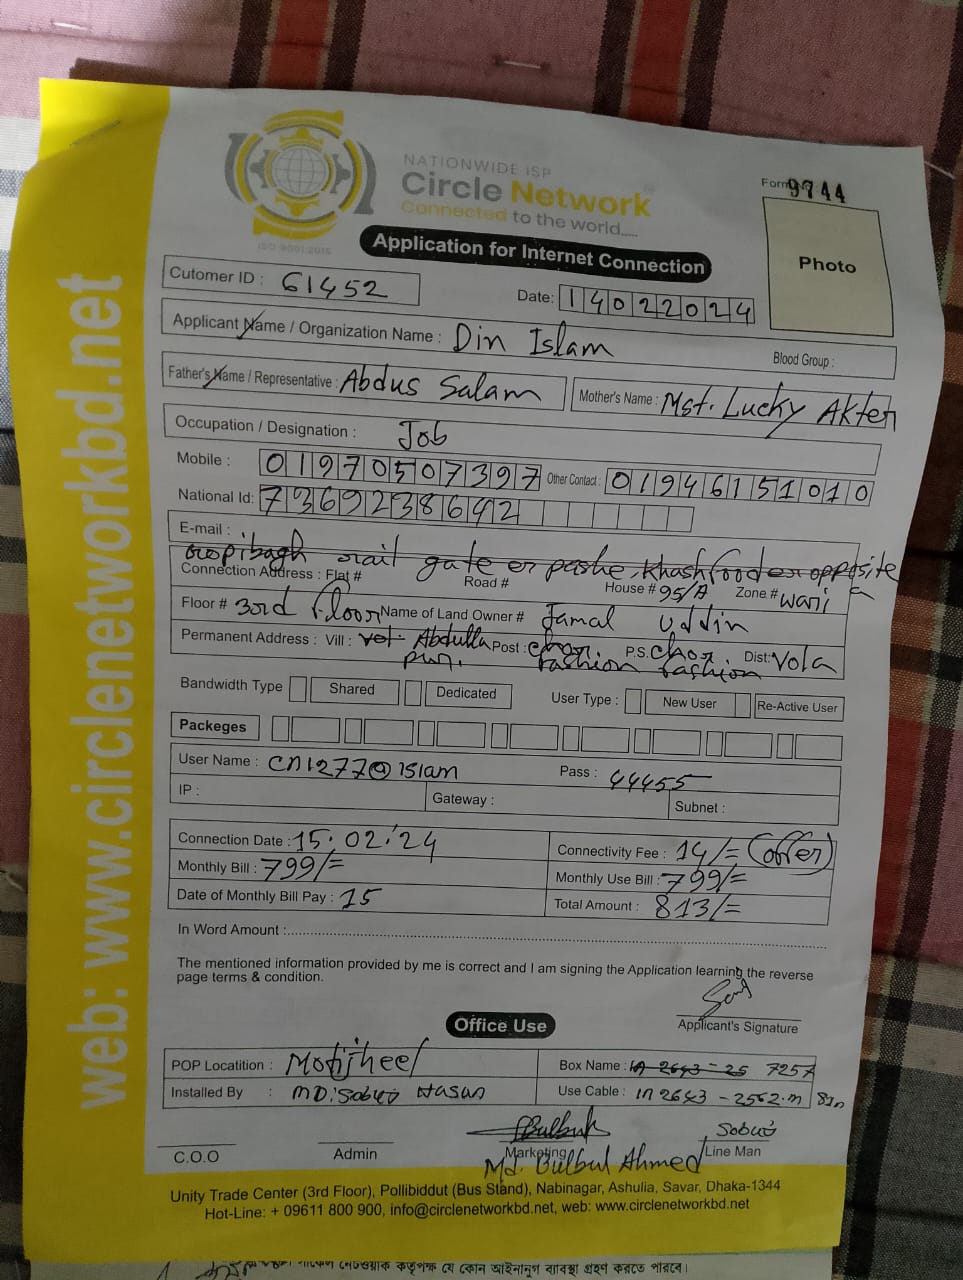 NATIONWIDE ISP
Circle Network
Connected to the world.....
ISO 9001:2015
Form 9744
Application for Internet Connection
Photo
Cutomer ID : 61452
Date: 14022024
Applicant Name / Organization Name : Din Islam
Blood Group :
Father's Name / Representative : Abdus Salam
Mother's Name : Mst. Lucky Akter
Occupation / Designation : Job
Mobile : 01970507397 Other Contact : 01946151010
National Id: 7369238642
E-mail :
gopibagh rail gate er pashe, khashfood er opposite
Connection Address : Flat # Road # House # 95/A Zone # wari
Floor # 3rd floor Name of Land Owner # Jamal Uddin
Permanent Address : Vill : Abdulla pur. Post : char fashion P.S. char fashion Dist: Vola
Bandwidth Type Shared Dedicated User Type : New User Re-Active User
Packeges
User Name : cn1277@islam Pass : 44455
IP : Gateway : Subnet :
Connection Date : 15.02.'24 Connectivity Fee : 14/= (offer)
Monthly Bill : 799/= Monthly Use Bill : 799/=
Date of Monthly Bill Pay : 15 Total Amount : 813/=
In Word Amount :
The mentioned information provided by me is correct and I am signing the Application learning the reverse
page terms & condition.
Applicant's Signature
Office Use
POP Locatition : Motijheel Box Name : 7257
Installed By : MD: Sobuj Hasan Use Cable : in 2643 - 2562.m 81m
Bulbul Sobuj
C.O.O Admin Marketing Line Man
Md. Bulbul Ahmed
Unity Trade Center (3rd Floor), Pollibiddut (Bus Stand), Nabinagar, Ashulia, Savar, Dhaka-1344
Hot-Line: + 09611 800 900, info@circlenetworkbd.net, web: www.circlenetworkbd.net
web: www.circlenetworkbd.net
নেটওয়ার্ক কর্তৃপক্ষ যে কোন আইনানুগ ব্যবস্থা গ্রহণ করতে পারবে।